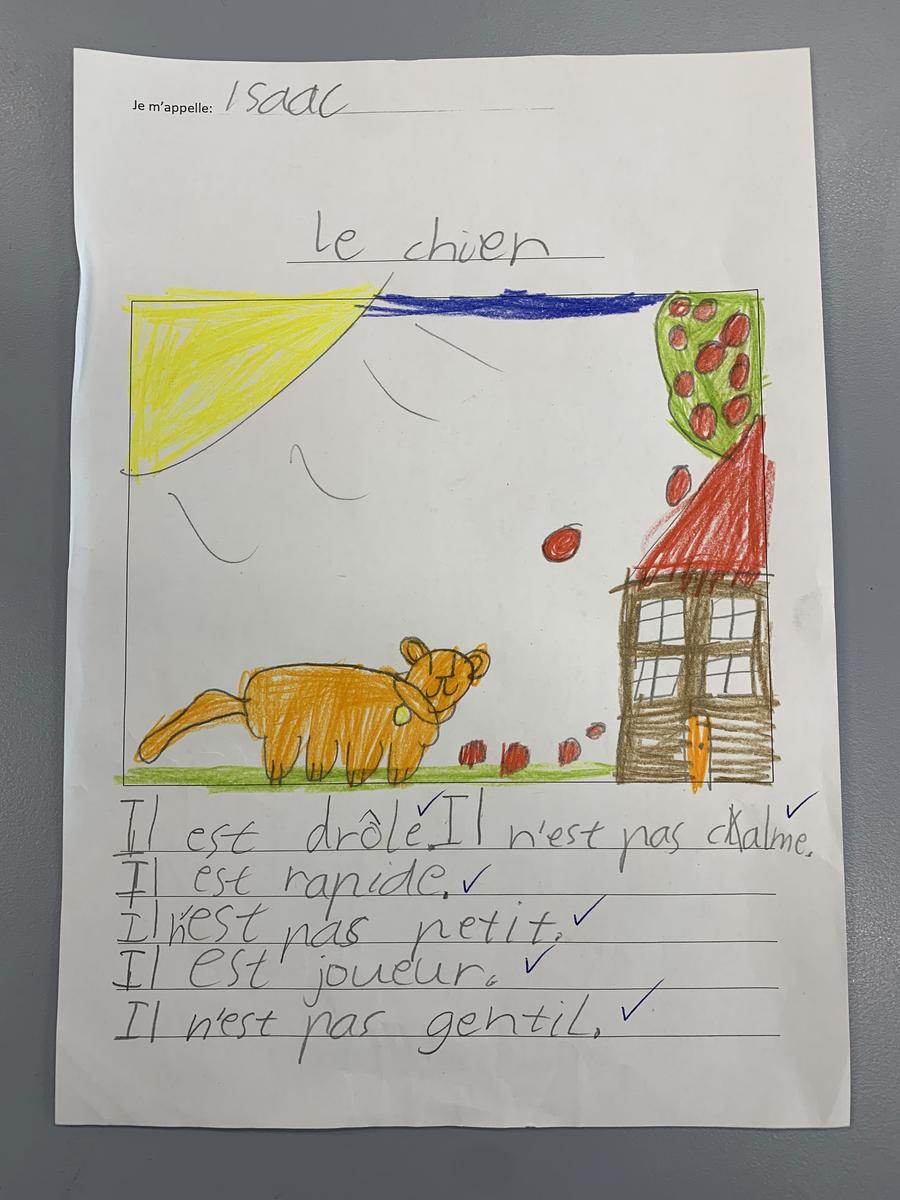 Je m'appelle: Isaac
le chien
Il est drôle. Il n'est pas calme.
Il est rapide.
Il n'est pas petit.
Il est joueur.
Il n'est pas gentil.